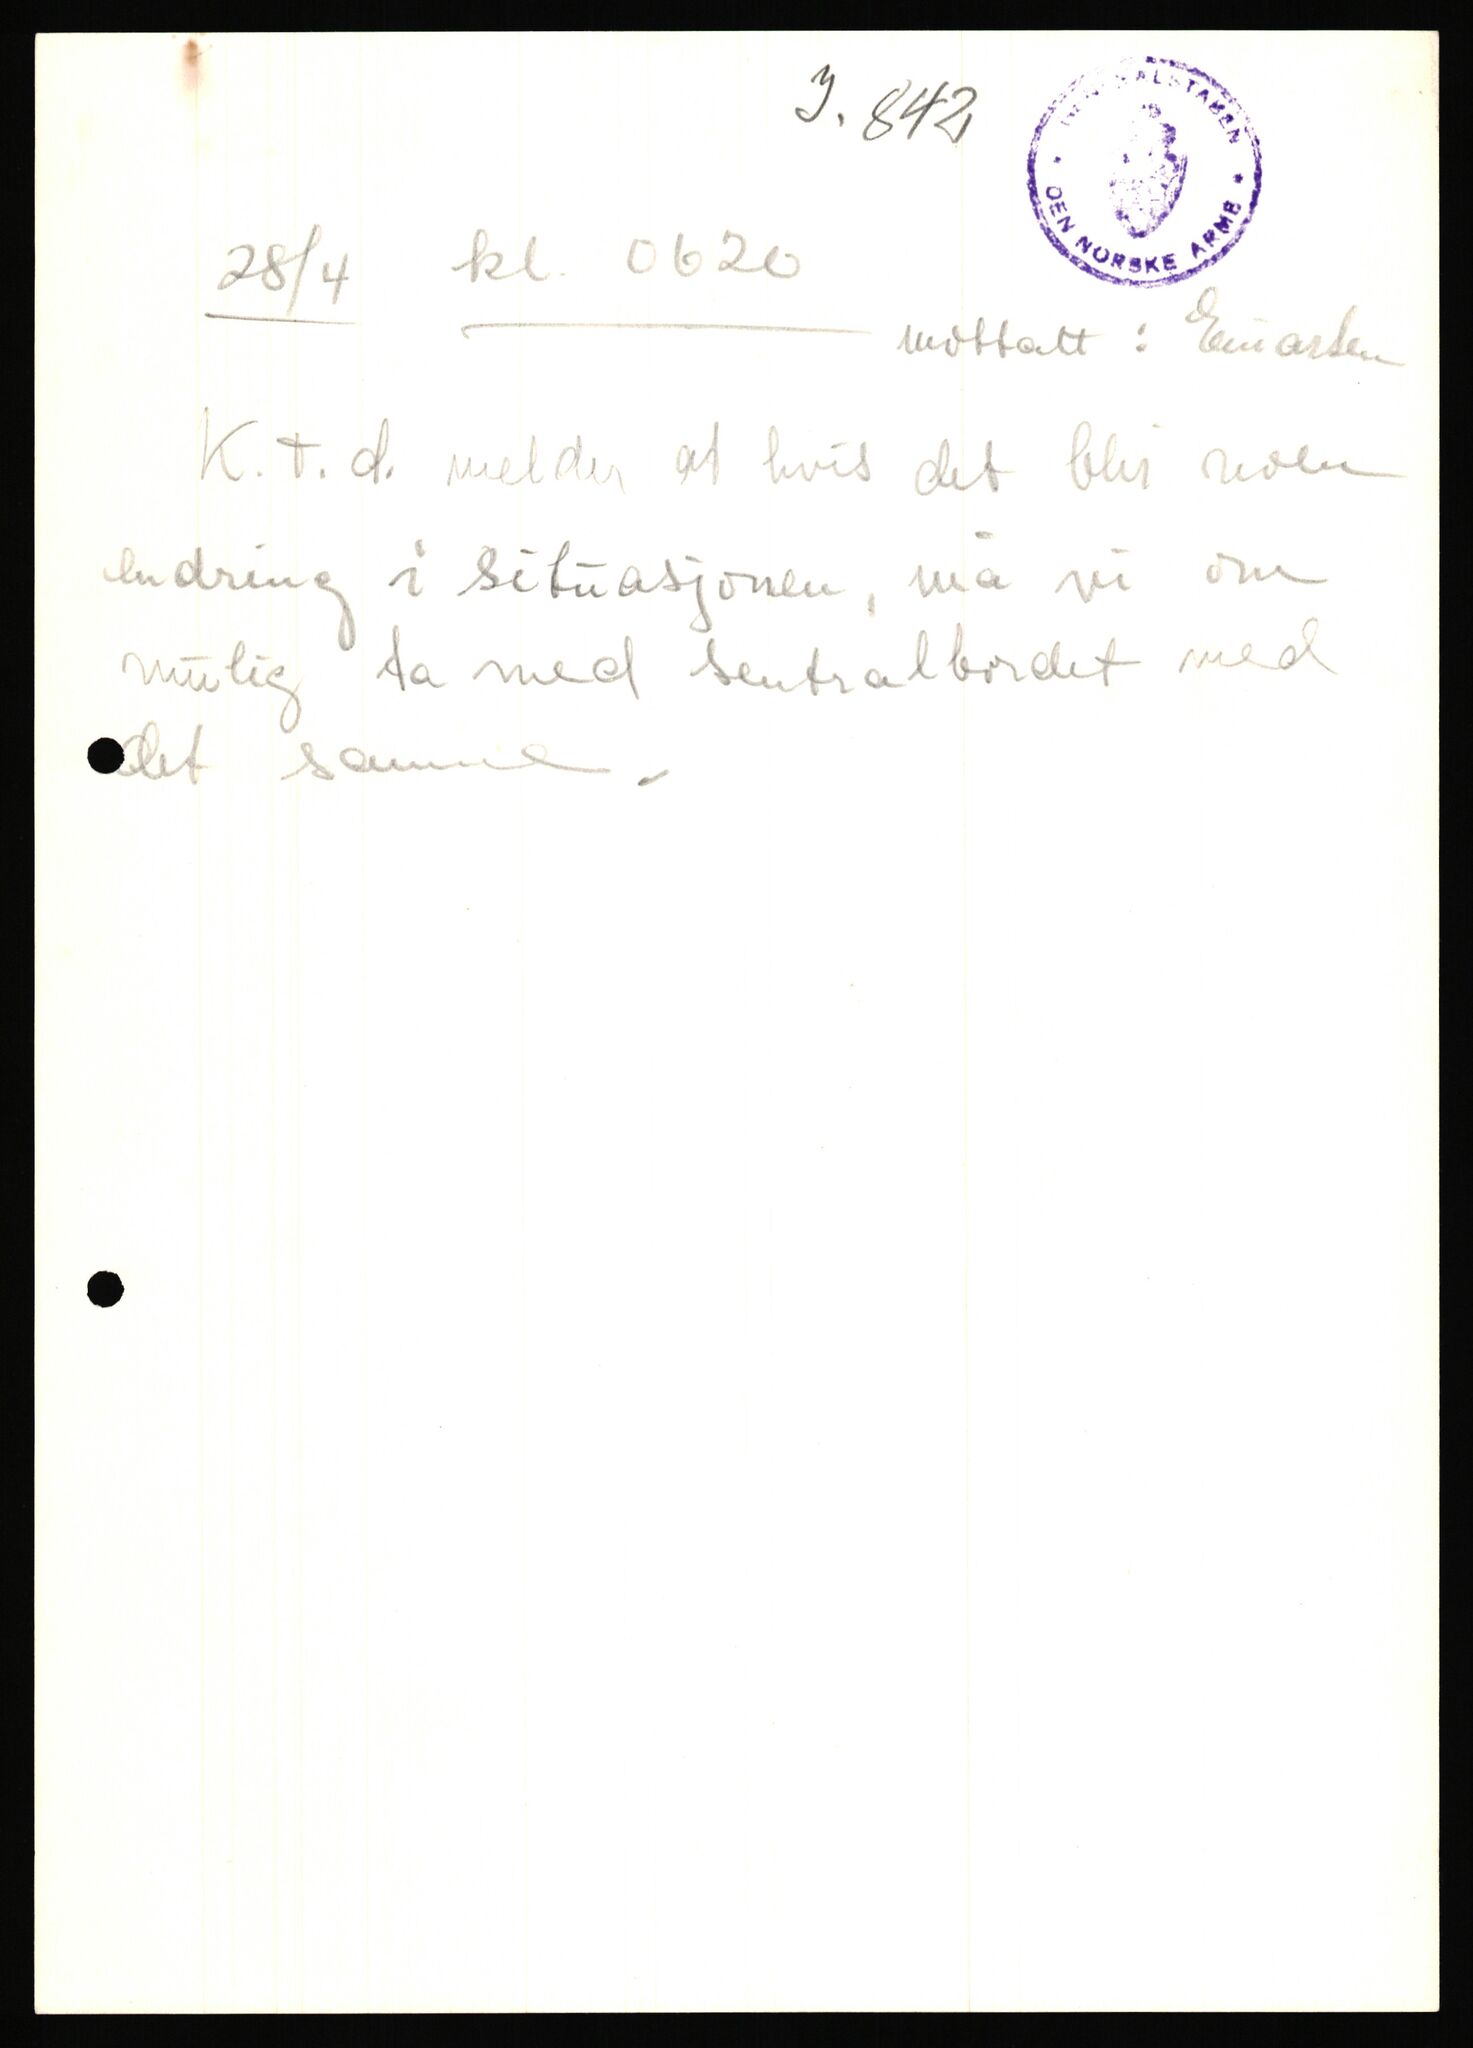 J. 842
GENERALSTABEN
* DEN NORSKE ARME *
28/4 kl. 0620
mottatt : Einarsen
K. t. d. melder at hvis det blir noen
endring i situasjonen, må vi om
mulig ta med sentralbordet med
det samme.